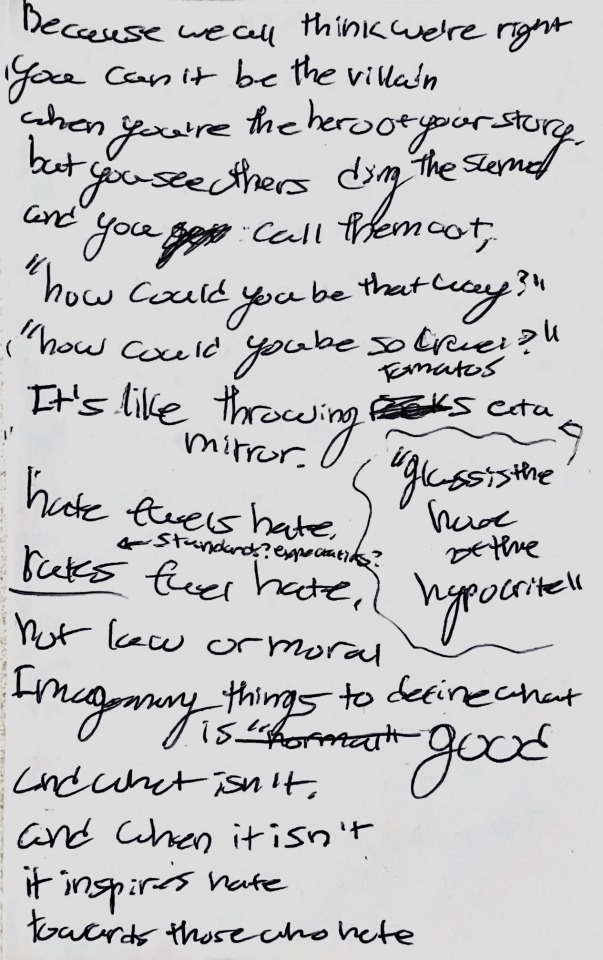 Because we all think we're right
You can't be the villain
when you're the hero of your story.
but you see others doing the same
and you call them out,
"how could you be that way?"
"how could you be so cruel?"
tomatos
It's like throwing at a
mirror.
"glass is the
house
of the
hypocrite"
hate fuels hate.
← standards? expectations?
rules fuel hate,
not law or moral
Imaginary things to define what
is "normal" good
and what isn't.
and when it isn't
it inspires hate
towards those who hate